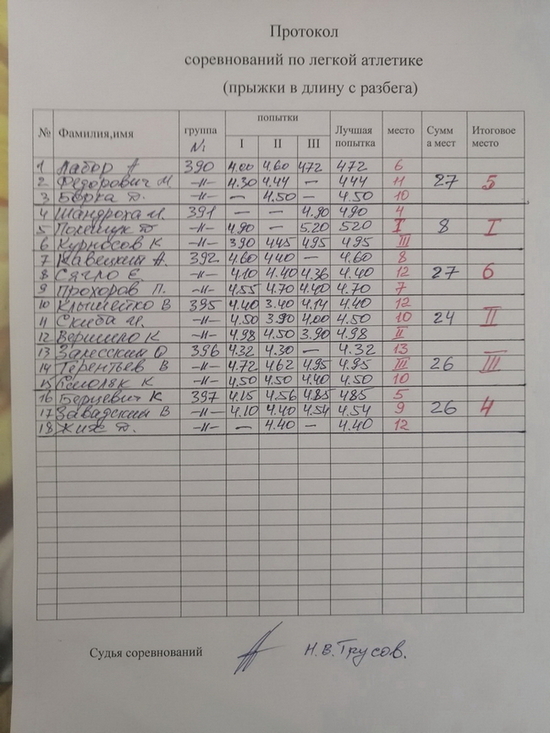 Протокол
соревнований по легкой атлетике
(прыжки в длину с разбега)
№ Фамилия,имя группа № попытки I II III Лучшая попытка место Сумм а мест Итоговое место
1 Лабор А 390 4.00 4.60 472 472 6
2 Федорович М. -"- 4.30 4.44 — 444 11 27 5
3 Борка D. -"- — 4.50 — 4.50 10
4 Шандроха И. 391 — — 4.90 490 4
5 Полещук D -"- 4.90 — 5.20 520 I 8 I
6 Курносов К -"- 390 445 495 495 III
7 А. 392 4.60 440 — 4.60 8
8 Сягло Е. -"- 410 4.40 4.36 4.40 12 27 6
9 Прохоров П. -"- 4.55 4.70 4.40 4.70 7
10 В 395 4.40 3.40 4.14 4.40 12
11 Скиба И. -"- 4.50 3.90 4.00 4.50 10 24 II
12 Вершило К -"- 4.98 4.50 3.90 4.98 II
13 Залесский О 396 4.32 4.30 — 4.32 13
14 Терентьев В -"- 4.72 462 4.95 4.95 III 26 III
15 Смоляк К -"- 4.50 4.50 4.40 4.50 10
16 К. 397 4.15 4.56 4.85 485 5
17 Завадский В -"- 4.10 4.40 4.54 4.54 9 26 4
18 Жих D. -"- — 4.40 — 4.40 12
Судья соревнований Н.В.Трусов.